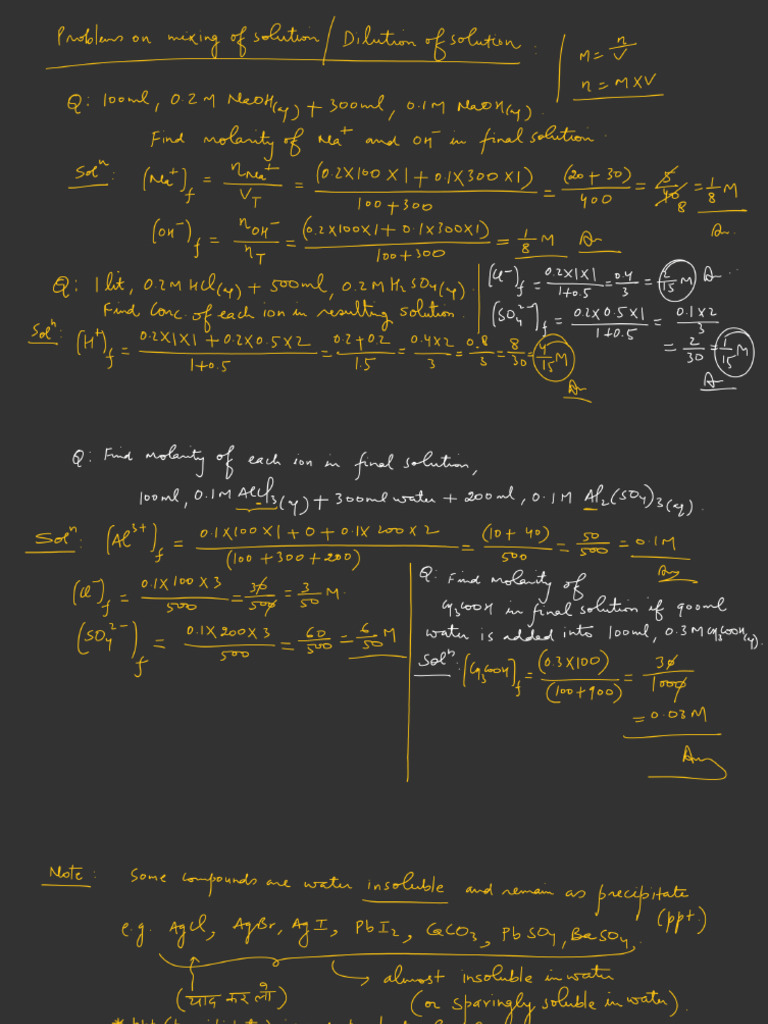 Problems on mixing of solution / Dilution of solution :
M = n/V
n = M×V
Q: 100ml, 0.2 M NaOH(aq) + 300ml, 0.1M NaOH(aq).
Find molarity of Na⁺ and OH⁻ in final solution.
Solⁿ: (Na⁺)f = nNa⁺/VT = (0.2×100×1 + 0.1×300×1)/(100+300) = (20+30)/400 = 5/40 8 = 1/8 M
Ans.
(OH⁻)f = nOH⁻/nT = (0.2×100×1 + 0.1×300×1)/(100+300) = 1/8 M Ans
Q: 1 lit, 0.2M HCl(aq) + 500ml, 0.2M H₂SO₄(aq).
Find Conc. of each ion in resulting solution.
Solⁿ: (H⁺)f = (0.2×1×1 + 0.2×0.5×2)/(1+0.5) = (0.2+0.2)/1.5 = (0.4×2)/3 = 0.8/3 = 8/30 = 4/15 M
Ans
(Cl⁻)f = (0.2×1×1)/(1+0.5) = 0.4/3 = 2/15 M Ans
(SO₄²⁻)f = (0.2×0.5×1)/(1+0.5) = (0.1×2)/3
= 2/30 = 1/15 M
Ans
Q: Find molarity of each ion in final solution,
100ml, 0.1M AlCl₃(aq) + 300ml water + 200ml, 0.1M Al₂(SO₄)₃(aq).
Solⁿ: (Al³⁺)f = (0.1×100×1 + 0 + 0.1×200×2)/(100+300+200) = (10+40)/500 = 50/500 = 0.1M
Ans
(Cl⁻)f = (0.1×100×3)/500 = 30/500 = 3/50 M.
(SO₄²⁻)f = (0.1×200×3)/500 = 60/500 = 6/50 M
Q: Find molarity of
CH₃COOH in final solution if 900ml
water is added into 100ml, 0.3M CH₃COOH(aq).
Solⁿ: [CH₃COOH]f = (0.3×100)/(100+900) = 30/1000
= 0.03 M
Ans
Note: Some compounds are water insoluble and remain as precipitate
(ppt)
e.g. AgCl, AgBr, AgI, PbI₂, CaCO₃, PbSO₄, BaSO₄.
→ almost insoluble in water
(याद कर लो) (or sparingly soluble in water).